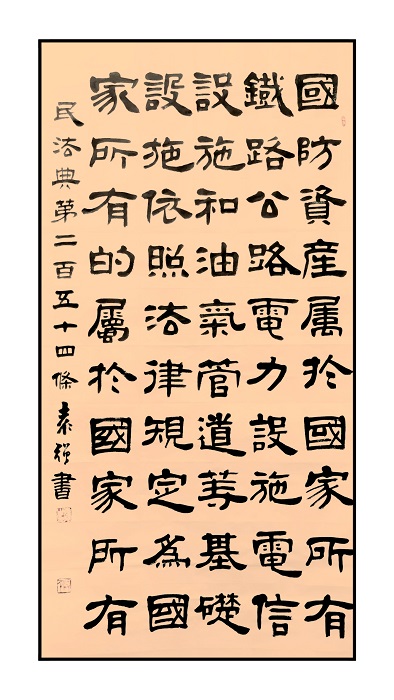 國防資産属於國家所有
鐵路公路電力設施電信
設施和油氣管道等基礎
設施依照法律規定為國
家所有的屬於國家所有
民法典第二百五十四條袁強書